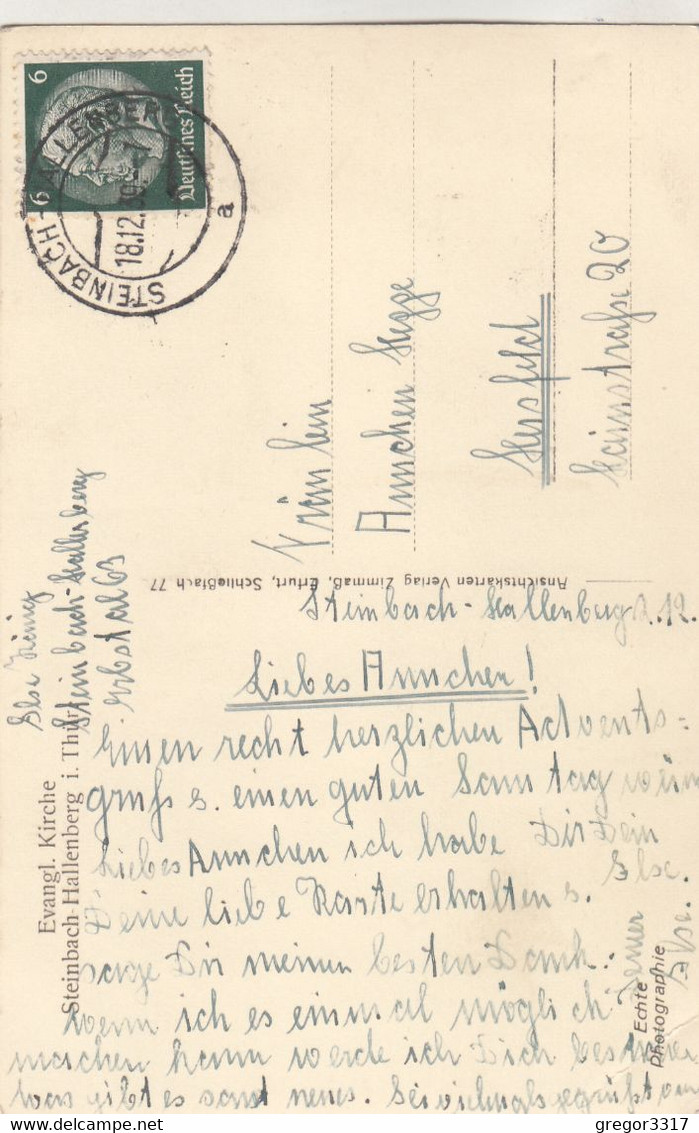 6 Deutsches Reich 6
STEINBACH-HALLENBERG
18.12.39
a
Fräulein
Annchen
Hersfeld
20
Ansichtskarten Verlag Zimmaß, Erfurt, Schließfach 77
Else
Steinbach-Hallenberg
63
Evangl. Kirche
Steinbach-Hallenberg i. Thür.
Echte
Photographie
Steinbach-Hallenberg 12.
Liebes Annchen!
Einen recht herzlichen Advents-
gruß s. einen guten Sonntag
Liebes Annchen ich habe Dir
Deine liebe Karte erhalten s.
sage Dir meinen besten Dank.
wenn ich es einmal möglich
machen kann werde ich Dich
was gibt es sonst neues. Sei vielmals gegrüßt von
Deiner
Else.
gregor3317